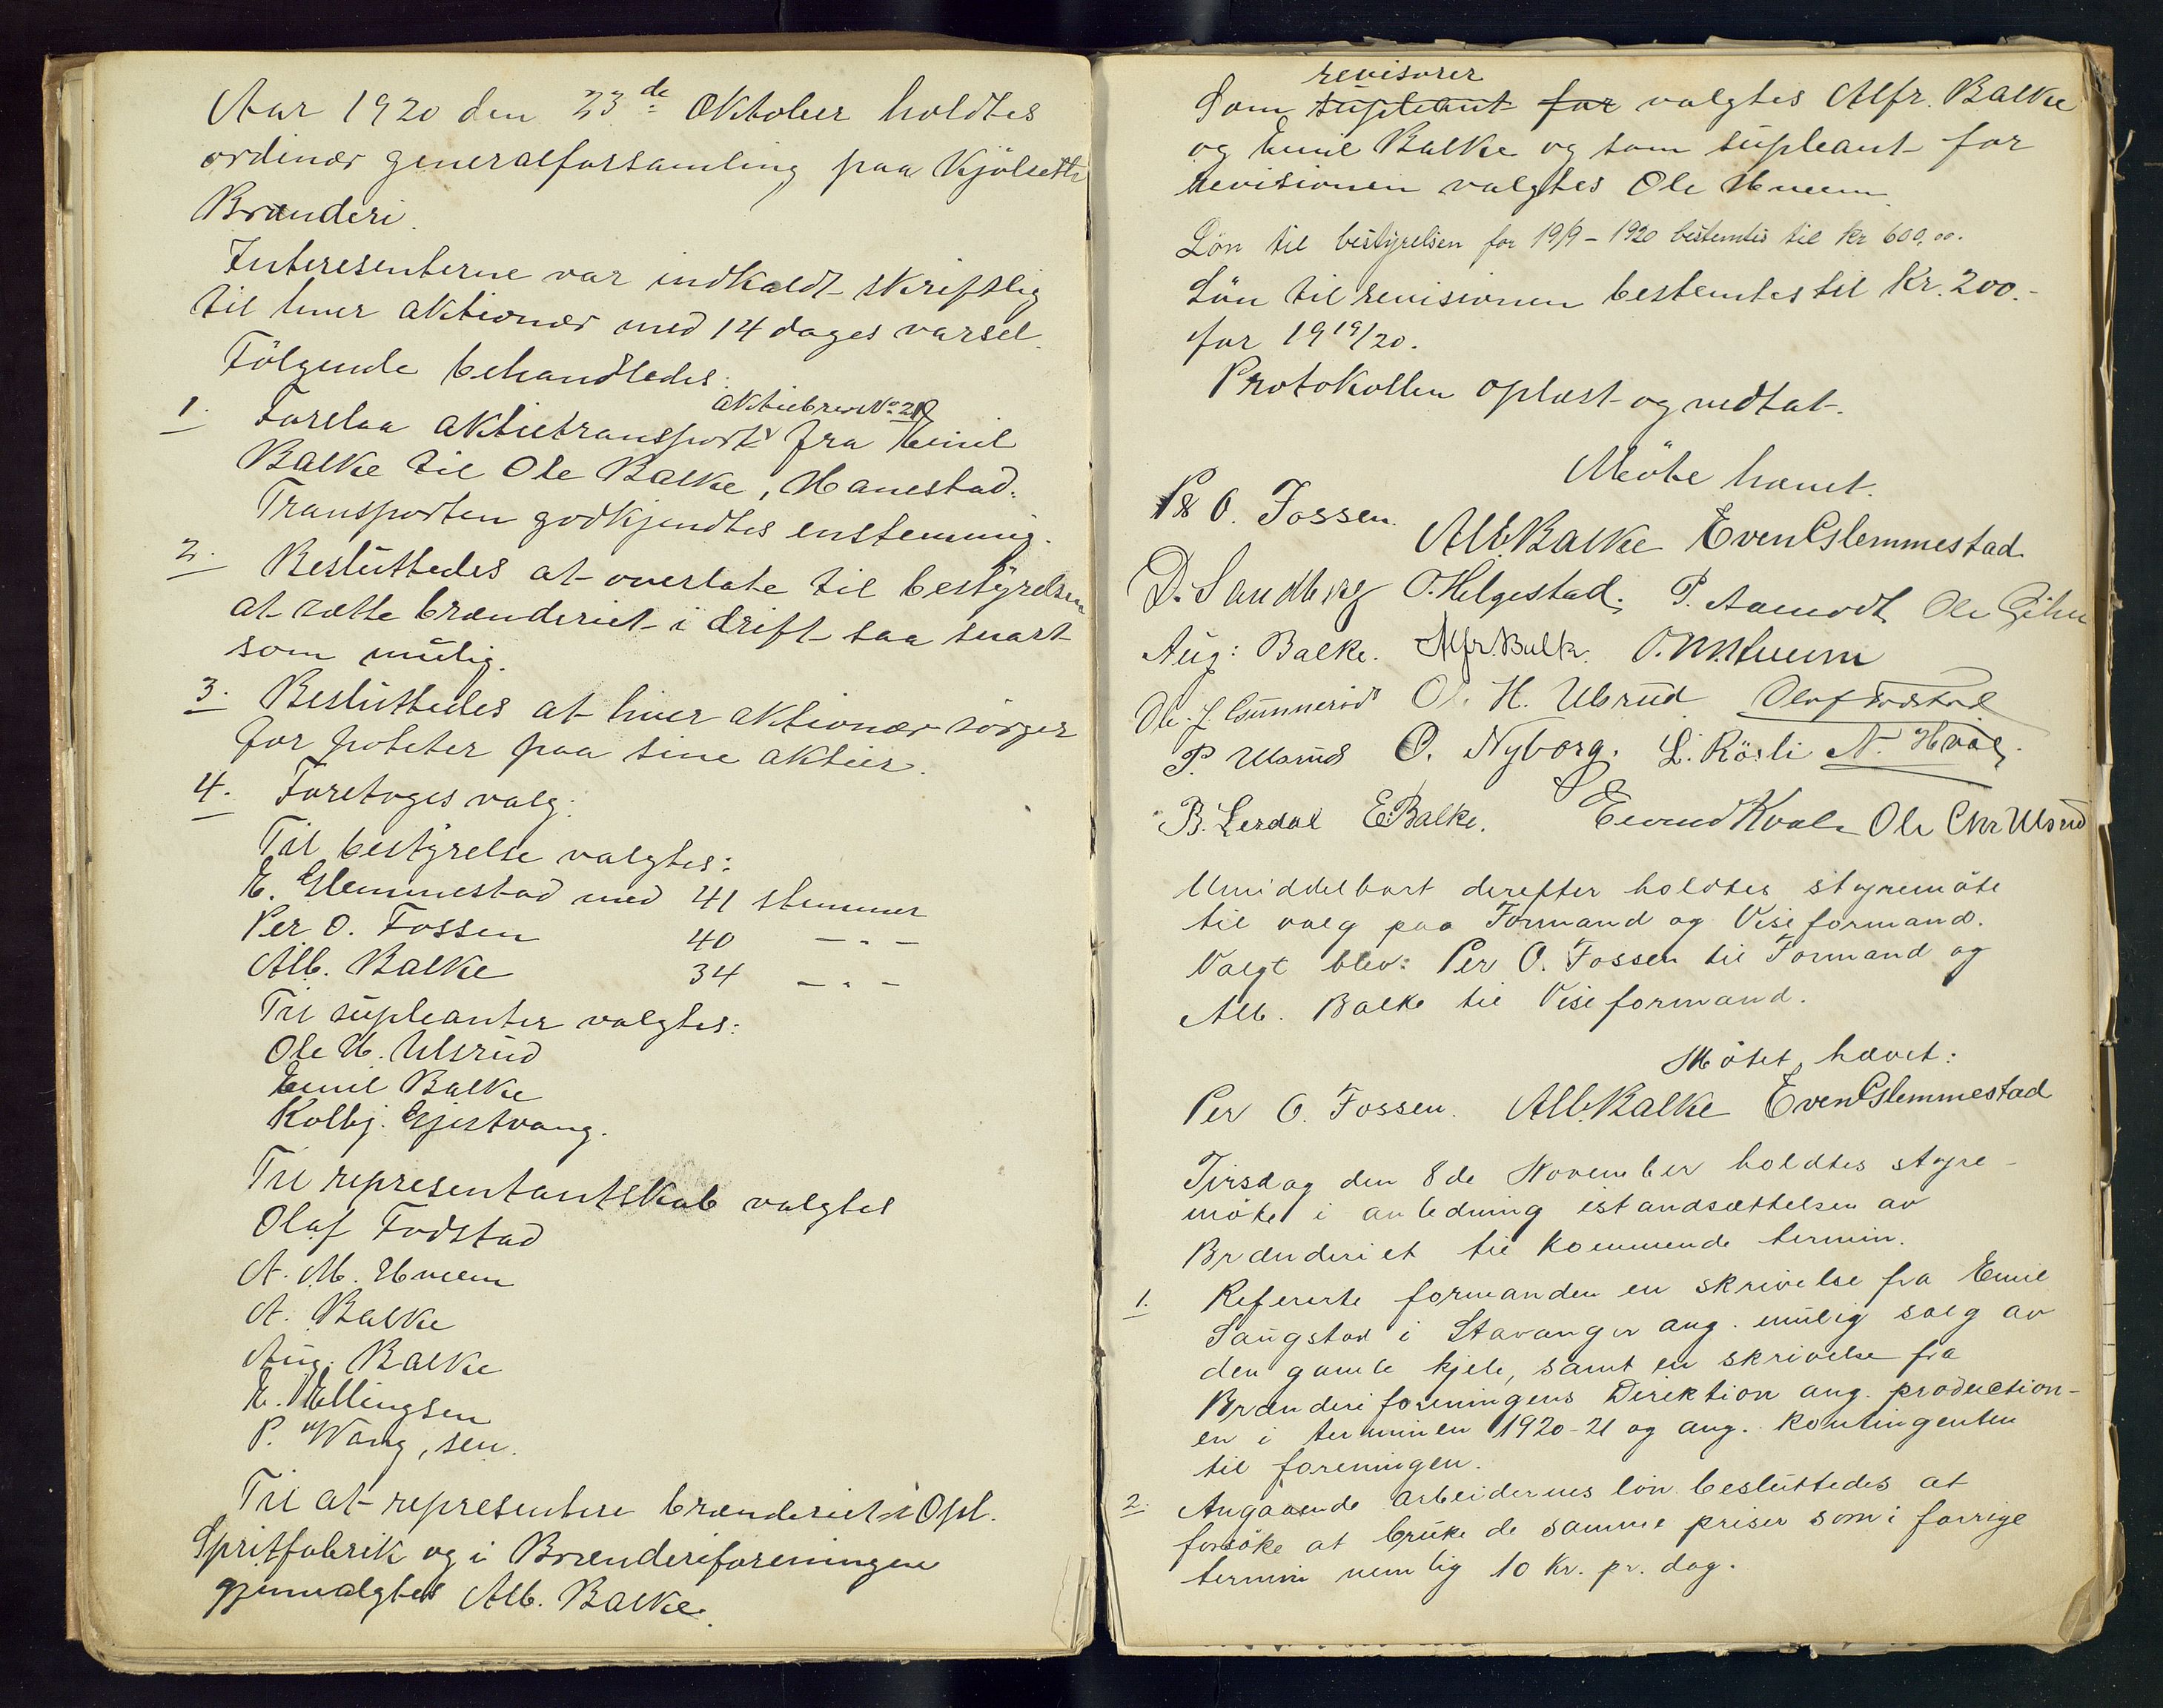 Aar 1920 den 23de Oktober holdtes
ordinær generalforsamling paa Kjölseth
Brænderi.
Interesenterne var indkaldt skriftlig
til hver aktionær med 14 dages varsel.
Fölgende behandledes:
aktiebrev No 21
1. Forelaa aktietransport fra Emil
Balke til Ole Balke, Hanestad.
Transporten godkjendtes enstemmig.
2. Besluttedes at overlate til bestyrelsen
at sætte brænderiet i drift saa snart
som mulig.
3. Besluttedes at hver aktionær sörger
for poteter paa sine aktier.
4. Foretoges valg:
Til bestyrelse valgtes:
E. Glemmestad med 41 stemmer
Per O. Fossen 40 – " –
Alb. Balke 34 – " –
Til supleanter valgtes:
Ole H. Ulsrud
Emil Balke
Kolbj. Gjestvang.
Til representantskab valgtes
Olaf Fodstad
A. M. Hveem
A. Balke
Aug. Balke
E. Ellingsen
P. Wang, sen.
Til at representere brænderiet i Opl.
Spritfabrik og i Brænderiforeningen
gjenvalgtes Alb. Balke.
revisorer
Som supleant for valgtes Alfr. Balke
og Emil Balke og som supleant for
revisionen valgtes Ole Hveem.
Lön til bestyrelsen for 1919–1920 bestemtes til kr 600,00.
Lön til revisionen bestemtes til Kr. 200.-
for 1919/20.
Protokollen oplæst og vedtat.
Möte hævet.
Per O. Fossen. Alb. Balke Even Glemmestad
D. Sandberg O. Helgestad. P. Aamodt Ole
Aug: Balke. Alfr. Balke. O. M. Hveem
Ole J. Gunnerød O. H. Ulsrud Olaf Fodstad
P. Ulsrud O. Nyborg. L. Rösli N. Hval.
B. Lerdal E. Balke. Eivind Kvale Ole Chr Ulsrud
Umiddelbart derefter holdtes styremöte
til valg paa Formand og Viseformand.
Valgt blev: Per O. Fossen til Formand og
Alb. Balke til Viseformand.
Mötet hævet:
Per O. Fossen. Alb. Balke Even Glemmestad
Tirsdag den 8de November holdtes styre-
möte i anledning istandsættelsen av
Brænderiet til kommende termin.
1. Refererte formanden en skrivelse fra Emil
Saugstad i Stavanger ang. mulig salg av
den gamle kjele, samt en skrivelse fra
Brænderiforeningens Direktion ang. production-
en i terminen 1920-21 og ang. kontingenten
til foreningen.
2. Angaaende arbeidernes lön besluttedes at
forsöke at bruke de samme priser som i forrige
termin nemlig 10 Kr. pr. dag.